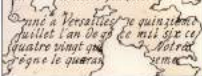 onné a Versailles le quinzième
uillet l'an De g ce mil six ce
quatre vingt qu Notre
règne le quaran seme